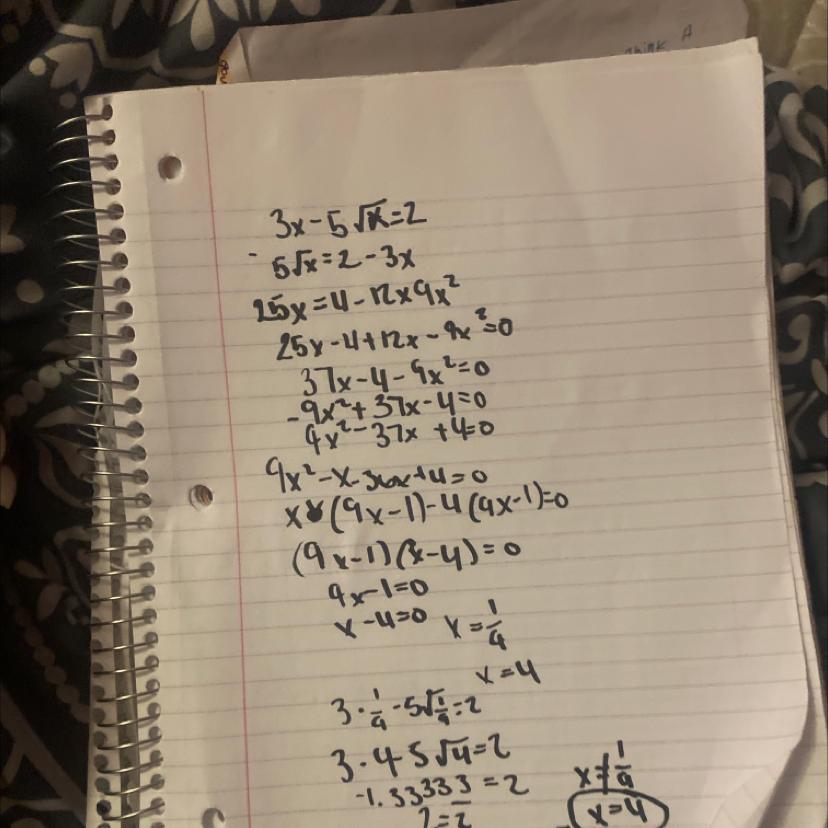 think A
3x - 5√x = 2
- 5√x = 2 - 3x
25x = 4 - 12x 9x²
25x - 4 + 12x - 9x² = 0
37x - 4 - 9x² = 0
-9x² + 37x - 4 = 0
9x² - 37x + 4 = 0
9x² - x - 36x + 4 = 0
x (9x - 1) - 4 (9x - 1) = 0
(9x - 1) (x - 4) = 0
9x - 1 = 0
x - 4 = 0 x = 1/9
x = 4
3 · 1/9 - 5√1/9 = 2
3 · 4 - 5 √4 = 2
-1.33333 = 2 x ≠ 1/9
2 = 2 x = 4